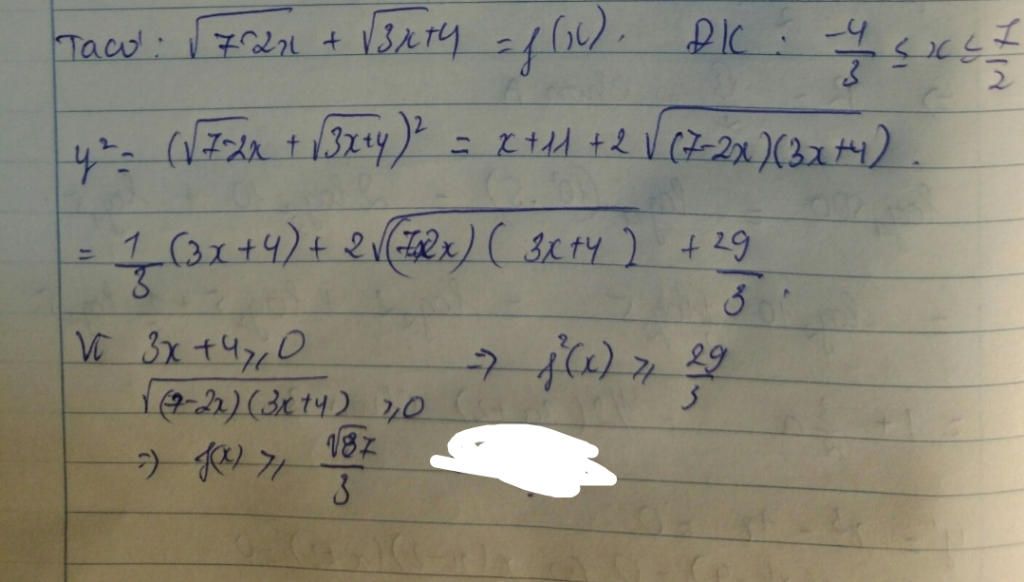 Ta có: √(7-2x) + √(3x+4) = f(x). ĐK: -4/3 ≤ x ≤ 7/2
y² = (√(7-2x) + √(3x+4))² = x+11+2√((7-2x)(3x+4)).
= 1/3 (3x+4) + 2√((7-2x)(3x+4)) + 29/3.
Vì 3x+4 ≥ 0 ⇒ f²(x) ≥ 29/3
√((7-2x)(3x+4)) ≥ 0
⇒ f(x) ≥ √87/3